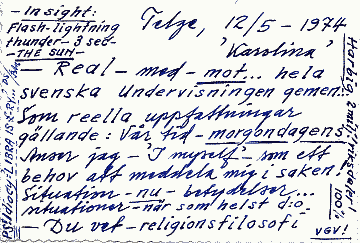 - Insight:
Flash-lightning
thunder - 3 sec -
- THE SUN -
Tetze, 12/5 - 1974
'Karolina'
- Real - med - mot... hela
svenska undervisningen gemen...
Som reella uppfattningar
gällande: Vår tid - morgondagens
Anser jag - 'I myself' - som ett
behov att meddela mig i saken.
Situation - nu - betydelser...
situationer - när som helst d:o
- Du vet - religionsfilosofi
VGV!
100%